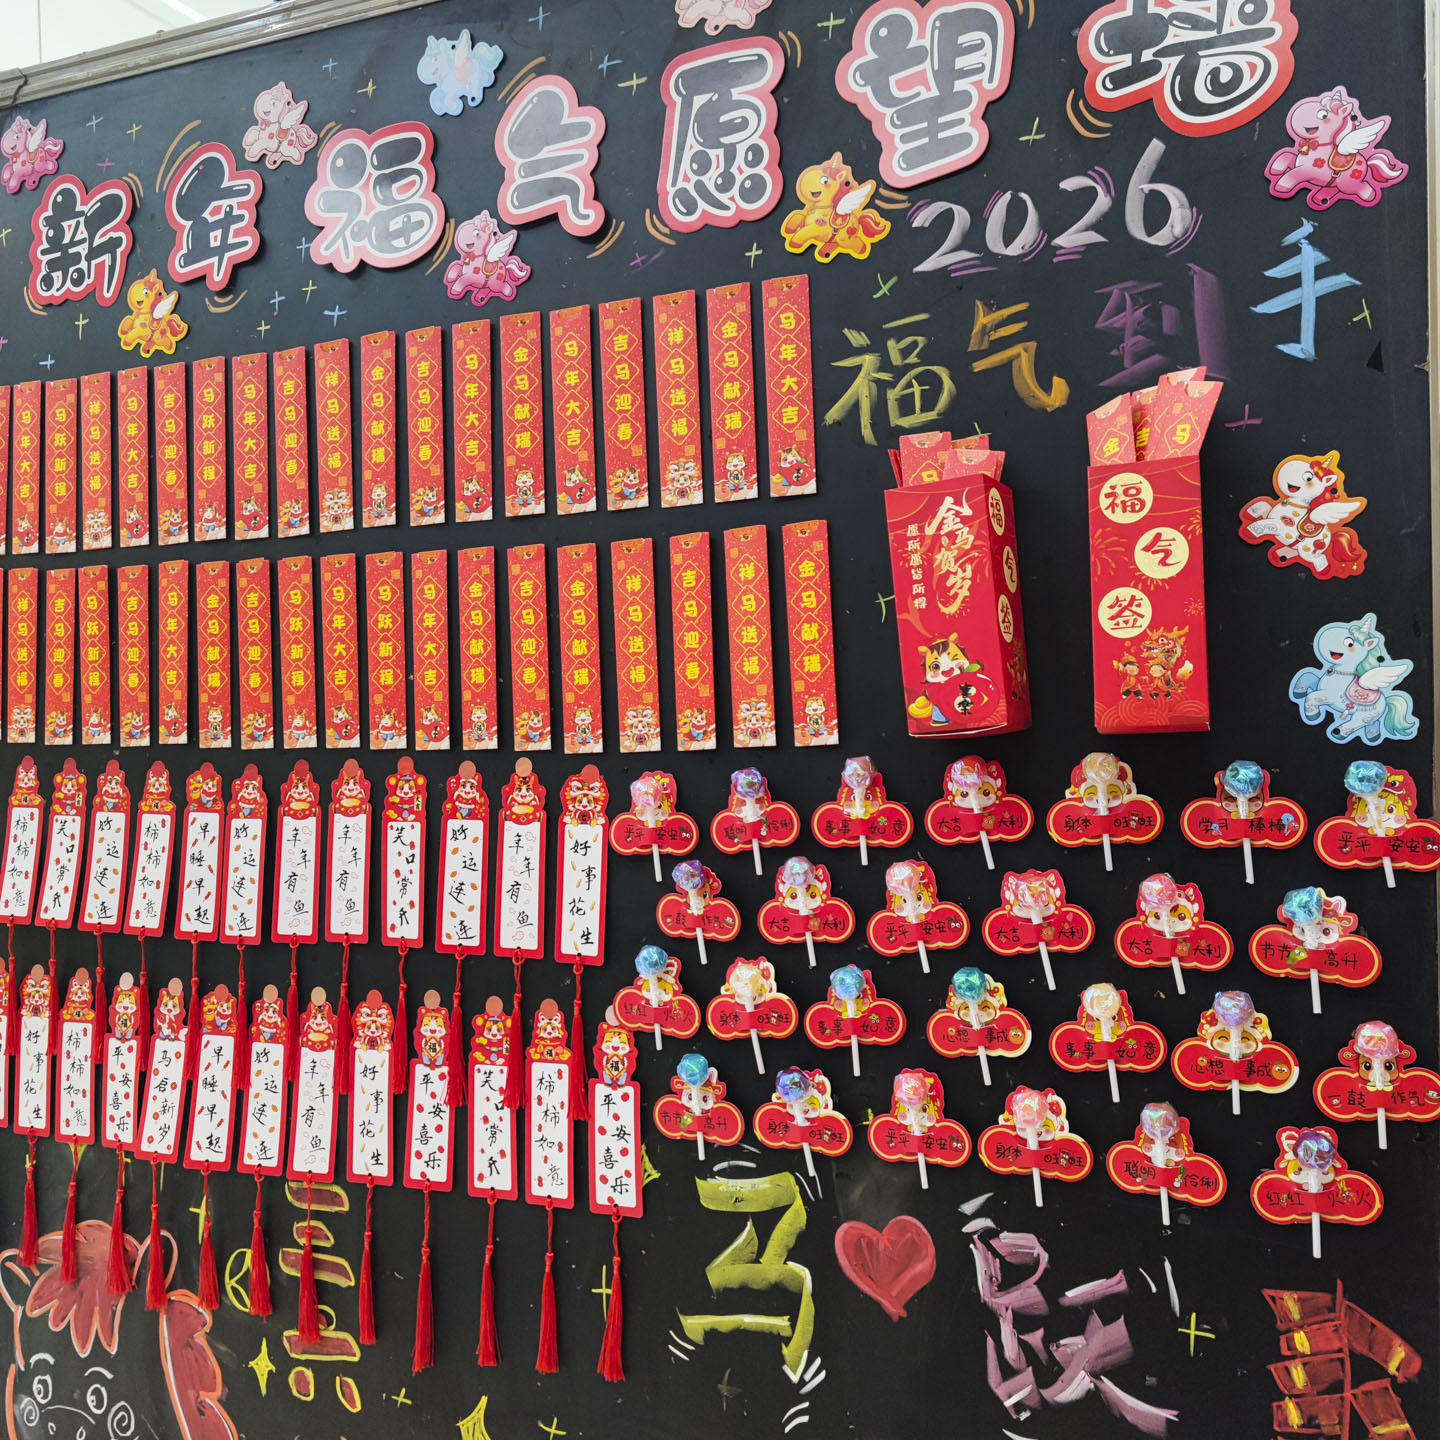 新年福气愿望墙
2026
福气到手
马年大吉
马跃新程
祥马送福
马年大吉
吉马迎春
马跃新程
马年大吉
吉马迎春
祥马送福
金马献瑞
吉马迎春
马年大吉
金马献瑞
马年大吉
吉马迎春
祥马送福
金马献瑞
马年大吉
祥马送福
吉马迎春
马跃新程
吉马迎春
马年大吉
金马献瑞
吉马迎春
马跃新程
马年大吉
马跃新程
马年大吉
金马献瑞
吉马迎春
金马献瑞
祥马送福
吉马迎春
祥马送福
金马献瑞
金马贺岁
愿所愿皆所得
福气签
金
吉
马
福气签
柿柿如意
笑口常开
好运连连
柿柿如意
早睡早起
好运连连
年年有鱼
年年有鱼
笑口常开
好运连连
年年有鱼
好事花生
好事花生
柿柿如意
平安喜乐
马启新岁
早睡早起
好运连连
年年有鱼
好事花生
平安喜乐
笑口常开
柿柿如意
平安喜乐
平平安安
聪明伶俐
事事如意
大吉大利
身体旺旺
学习棒棒
平平安安
一鼓作气
大吉大利
平平安安
大吉大利
大吉大利
节节高升
红红火火
身体旺旺
事事如意
心想事成
事事如意
心想事成
一鼓作气
节节高升
身体旺旺
平平安安
身体旺旺
聪明伶俐
红红火火
马跃